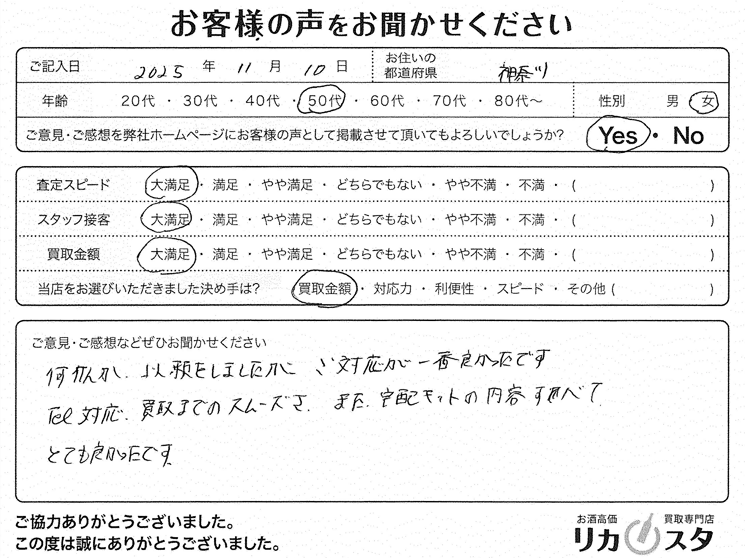 お客様の声をお聞かせください
ご記入日 2025 年 11 月 10 日 お住いの都道府県 神奈川
年齢 20代 ・ 30代 ・ 40代 ・ 50代 ・ 60代 ・ 70代 ・ 80代～ 性別 男 女
ご意見・ご感想を弊社ホームページにお客様の声として掲載させて頂いてもよろしいでしょうか? Yes ・ No
査定スピード 大満足 ・ 満足 ・ やや満足 ・ どちらでもない ・ やや不満 ・ 不満 ・ ( )
スタッフ接客 大満足 ・ 満足 ・ やや満足 ・ どちらでもない ・ やや不満 ・ 不満 ・ ( )
買取金額 大満足 ・ 満足 ・ やや満足 ・ どちらでもない ・ やや不満 ・ 不満 ・ ( )
当店をお選びいただきました決め手は? 買取金額 ・ 対応力 ・ 利便性 ・ スピード ・ その他 ( )
ご意見・ご感想などぜひお聞かせください
をしましたが ご対応が一番良かったです
Tel対応、買取までのスムーズさ、また、宅配キットの内容すべて
とても良かったです
ご協力ありがとうございました。
この度は誠にありがとうございました。
お酒高価 買取専門店
リカスタ